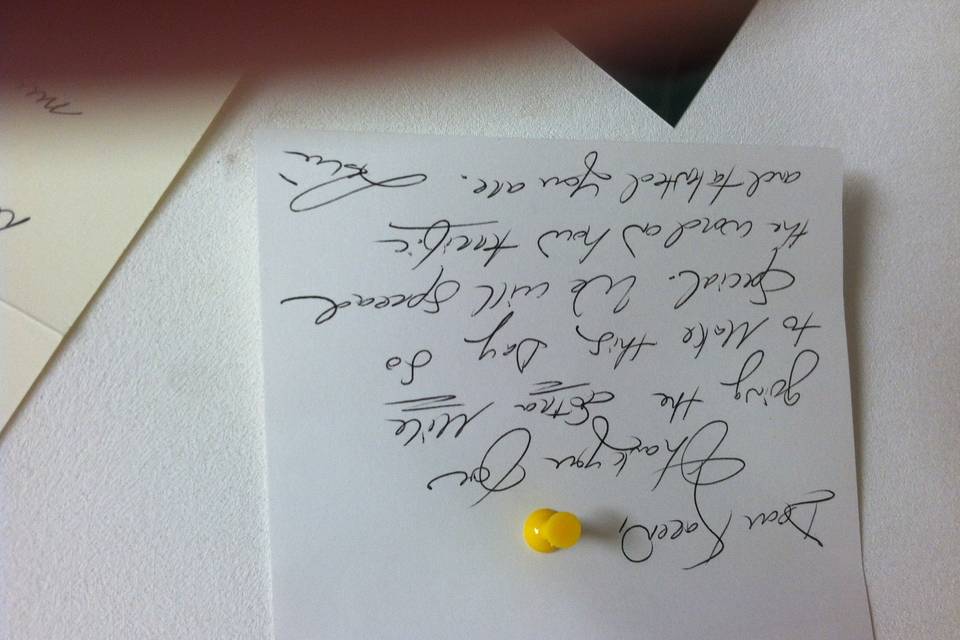 Dear Karen,
Thank you for
going the Extra Mile
to Make this Day So
Special. We will Spread
the word on how terrific
and talented you are.